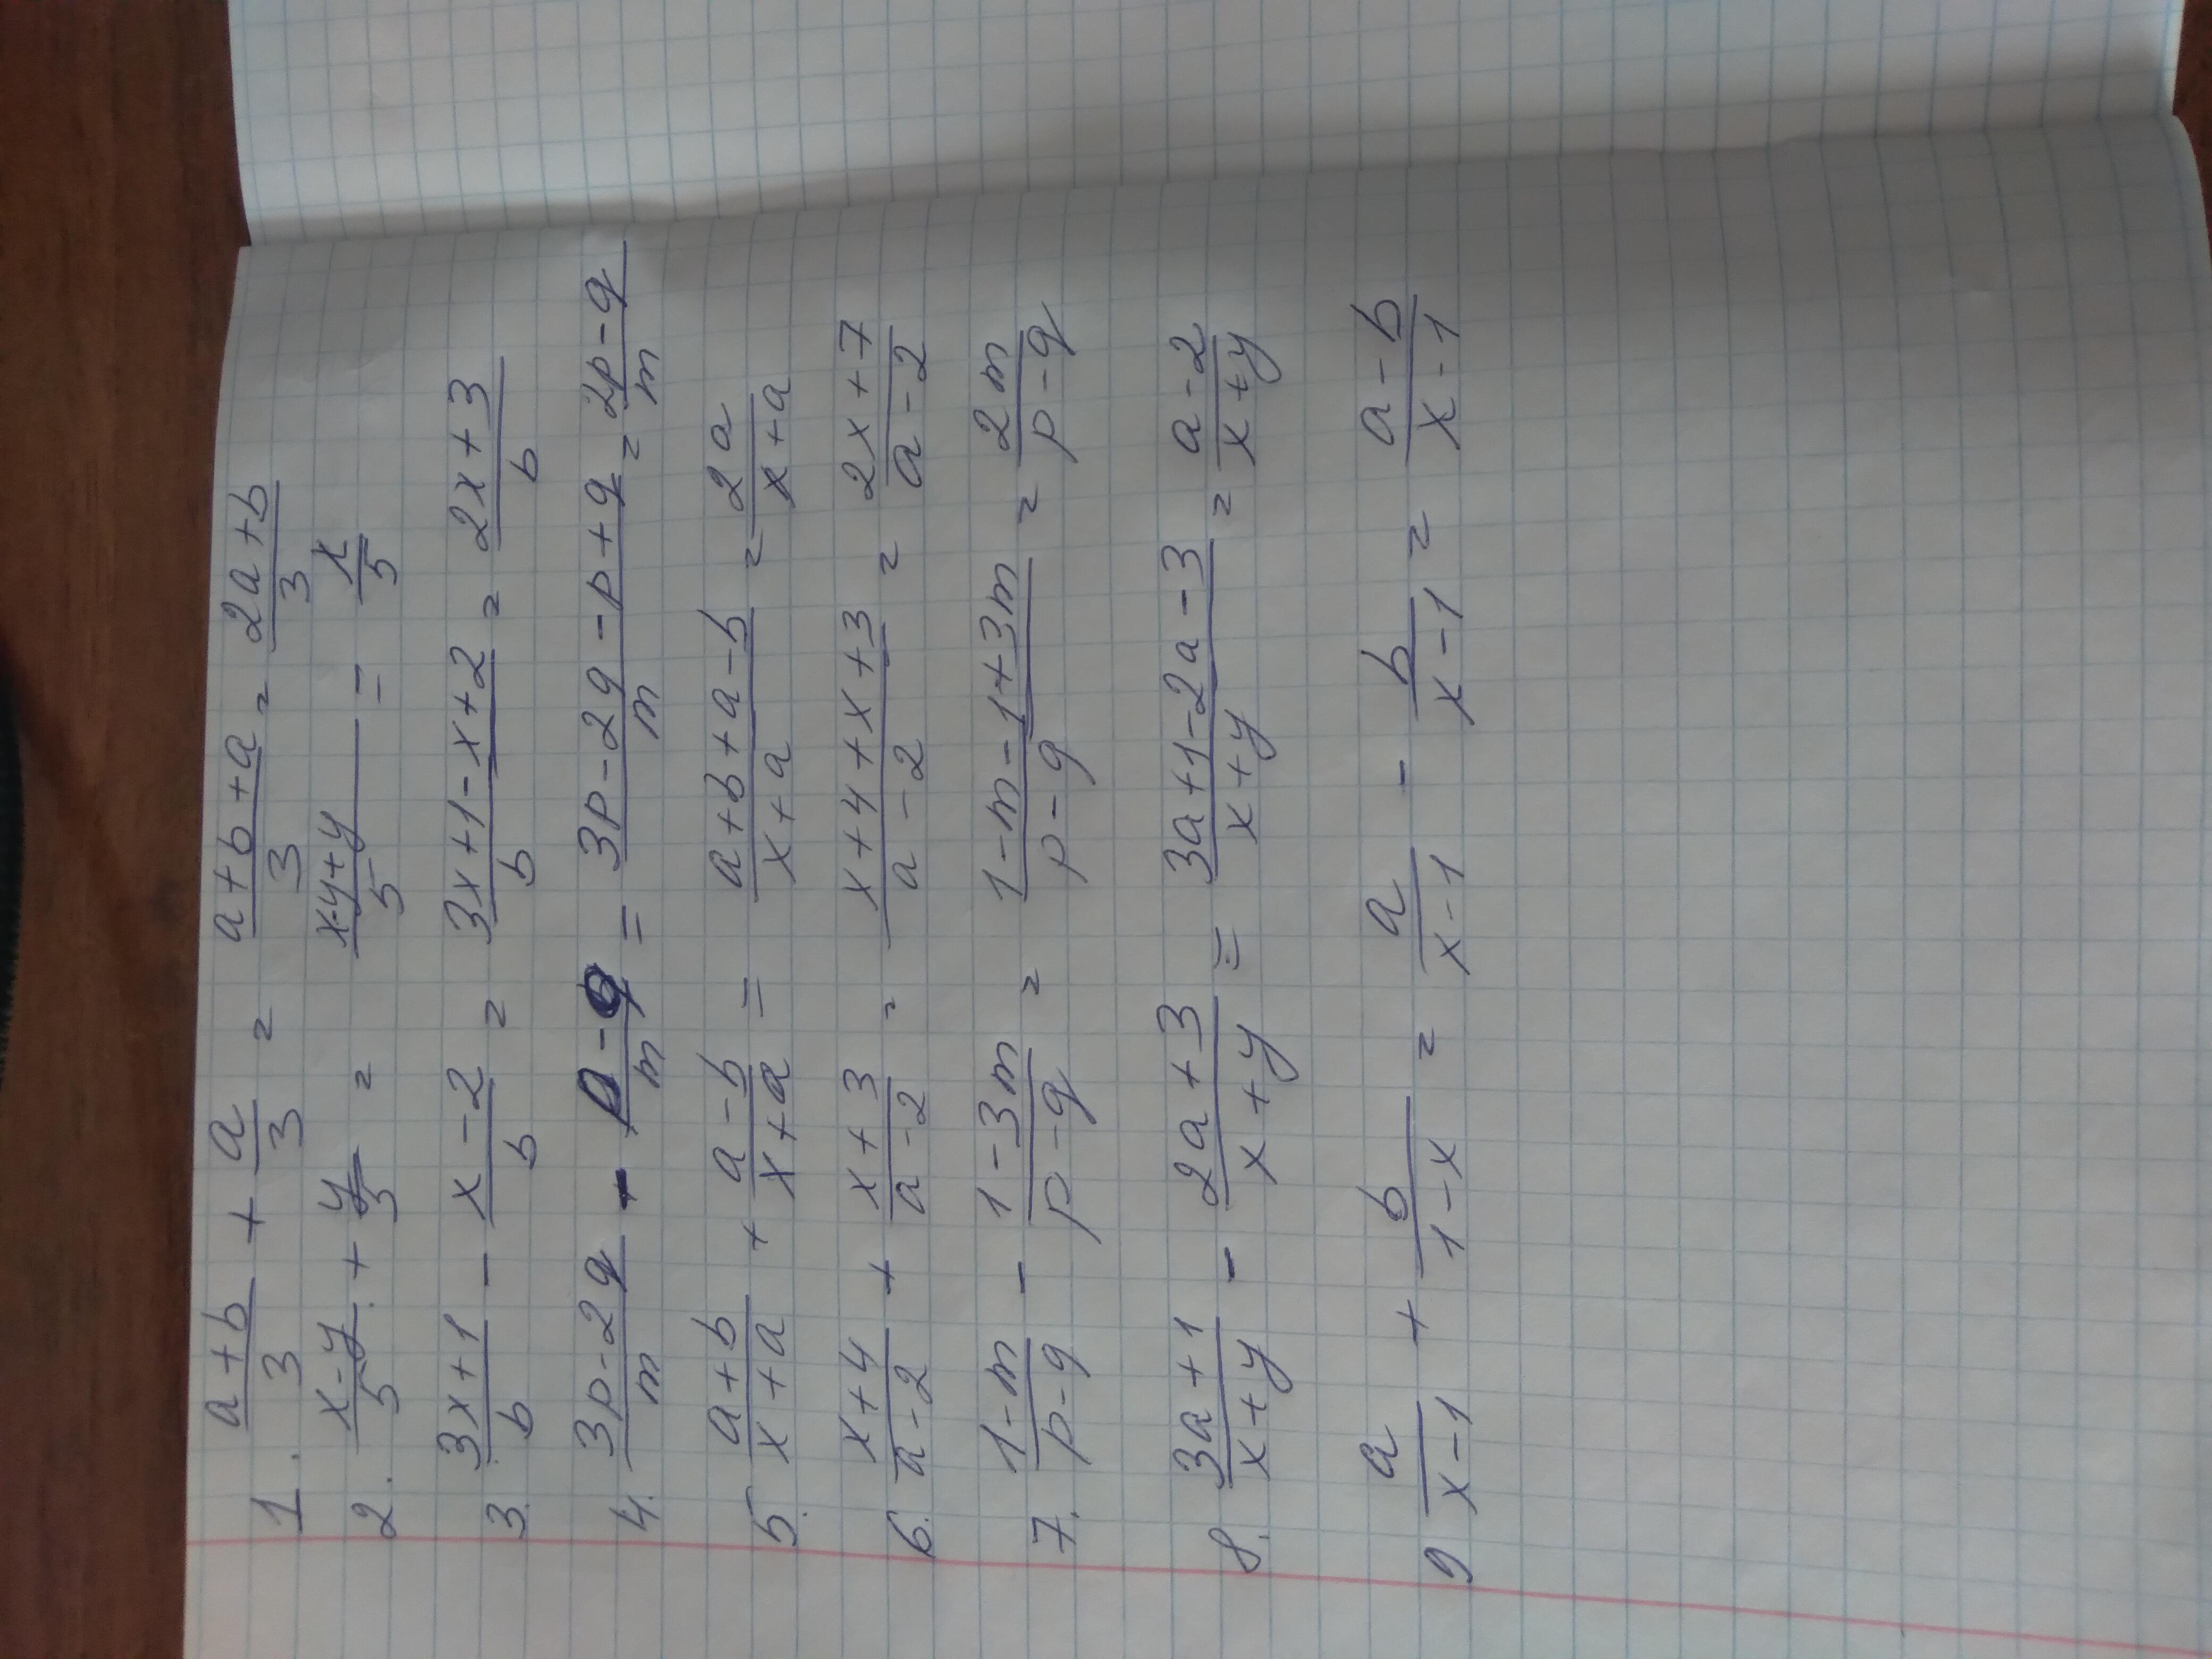 1. (a+b)/3 + a/3 = (a+b+a)/3 = (2a+b)/3
2. (x-y)/5 + y/5 = (x-y+y)/5 = x/5
3. (3x+1)/b - (x-2)/b = (3x+1-x+2)/b = (2x+3)/b
4. (3p-2q)/m - (p-q)/m = (3p-2q-p+q)/m = (2p-q)/m
5. (a+b)/(x+a) + (a-b)/(x+a) = (a+b+a-b)/(x+a) = 2a/(x+a)
6. (x+4)/(a-2) + (x+3)/(a-2) = (x+4+x+3)/(a-2) = (2x+7)/(a-2)
7. (1-m)/(p-q) - (1-3m)/(p-q) = (1-m-1+3m)/(p-q) = 2m/(p-q)
8. (3a+1)/(x+y) - (2a+3)/(x+y) = (3a+1-2a-3)/(x+y) = (a-2)/(x+y)
9 a/(x-1) + b/(1-x) = a/(x-1) - b/(x-1) = (a-b)/(x-1)